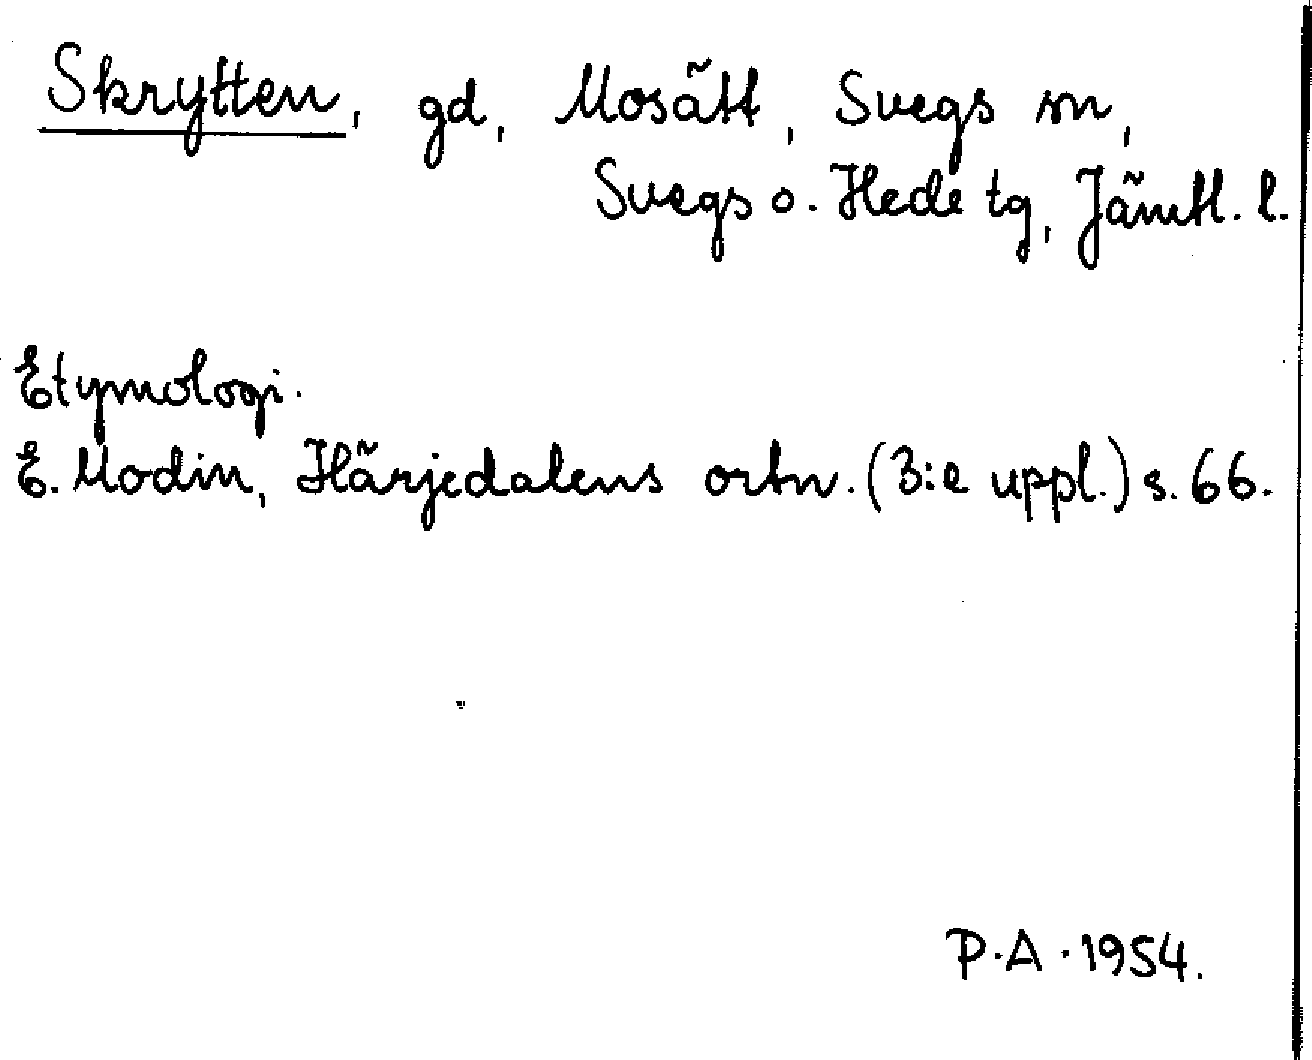 Skrytten, gd, Mosätt, Svegs sn,
Svegs o. Hede tg, Jämtl. l.
Etymologi.
E. Modin, Härjedalens ortn. (3:e uppl.) s. 66.
P.A. 1954.